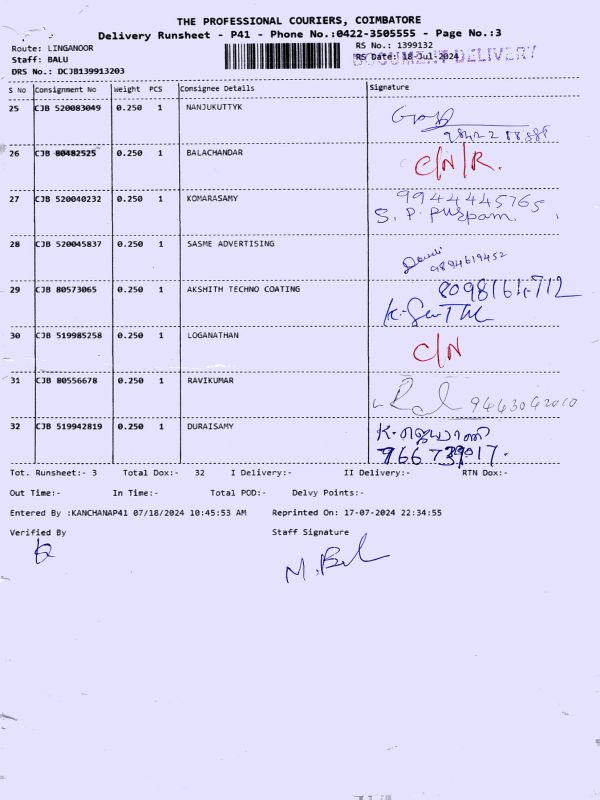 THE PROFESSIONAL COURIERS, COIMBATORE
Delivery Runsheet - P41 - Phone No.:0422-3505555 - Page No.:3
Route: LINGANOOR
RS No.: 1399132
Staff: BALU
RS Date: 18-Jul-2024
DOCUMENT DELIVERY
DRS No.: DCJB139913203
S No Consignment No Weight PCS Consignee Details Signature
25 CJB 520083049 0.250 1 NANJUKUTTYK
26 CJB 80482525 0.250 1 BALACHANDAR C/N/R.
27 CJB 520040232 0.250 1 KOMARASAMY 9944445765
S. P. Puspam.
28 CJB 520045837 0.250 1 SASME ADVERTISING
9894619452
29 CJB 80573065 0.250 1 AKSHITH TECHNO COATING
30 CJB 519985258 0.250 1 LOGANATHAN C/N
31 CJB 80556678 0.250 1 RAVIKUMAR 9463042010
32 CJB 519942819 0.250 1 DURAISAMY
Tot. Runsheet:- 3 Total Dox:- 32 I Delivery:- II Delivery:- RTN Dox:-
Out Time:- In Time:- Total POD:- Delvy Points:-
Entered By :KANCHANAP41 07/18/2024 10:45:53 AM Reprinted On: 17-07-2024 22:34:55
Verified By Staff Signature